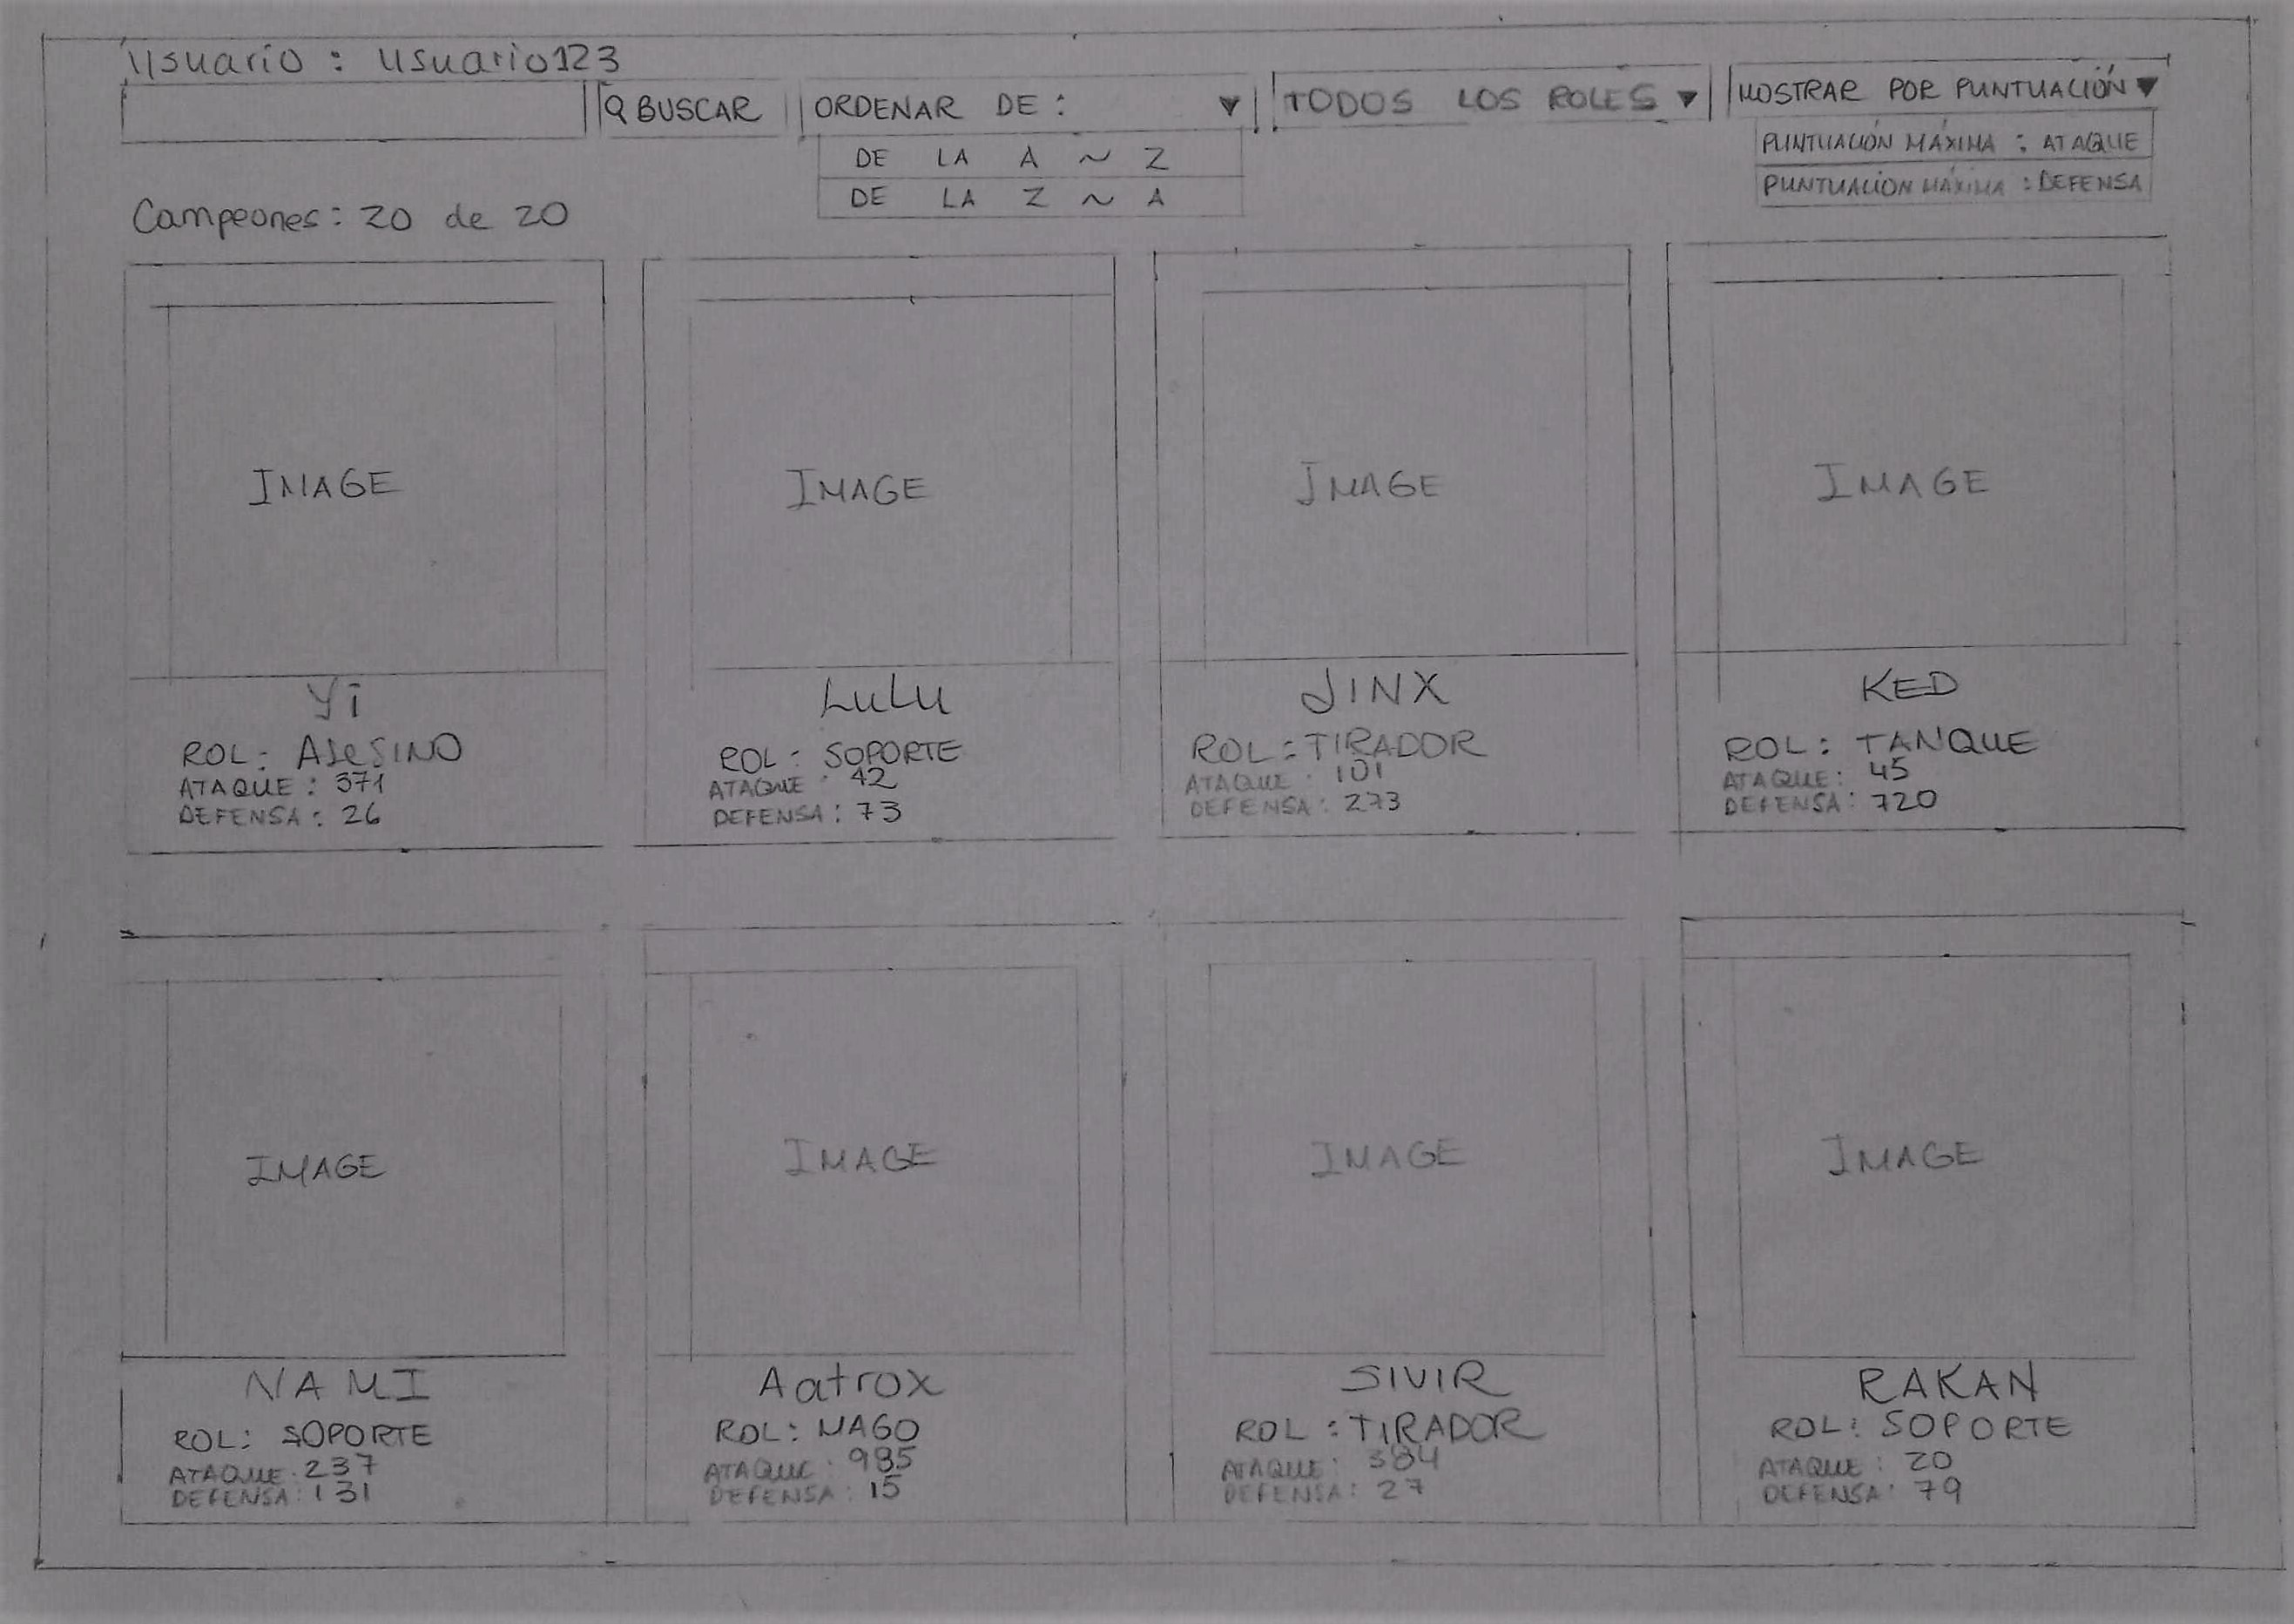 Usuario : usuario123
BUSCAR
ORDENAR DE :
TODOS LOS ROLES
MOSTRAR POR PUNTUACIÓN
DE LA A ~ Z
DE LA Z ~ A
PUNTUACIÓN MÁXIMA : ATAQUE
PUNTUACION MÁXIMA : DEFENSA
Campeones: 20 de 20
IMAGE
IMAGE
IMAGE
IMAGE
Yi
ROL: ASESINO
ATAQUE : 371
DEFENSA : 26
LuLu
ROL : SOPORTE
ATAQUE : 42
DEFENSA : 73
JINX
ROL : TIRADOR
ATAQUE : 101
DEFENSA : 273
KED
ROL : TANQUE
ATAQUE : 45
DEFENSA : 720
IMAGE
IMAGE
IMAGE
IMAGE
NAMI
ROL: SOPORTE
ATAQUE : 237
DEFENSA : 131
Aatrox
ROL: MAGO
ATAQUE : 985
DEFENSA : 15
SIVIR
ROL : TIRADOR
ATAQUE : 384
DEFENSA : 27
RAKAN
ROL: SOPORTE
ATAQUE : 20
DEFENSA : 79